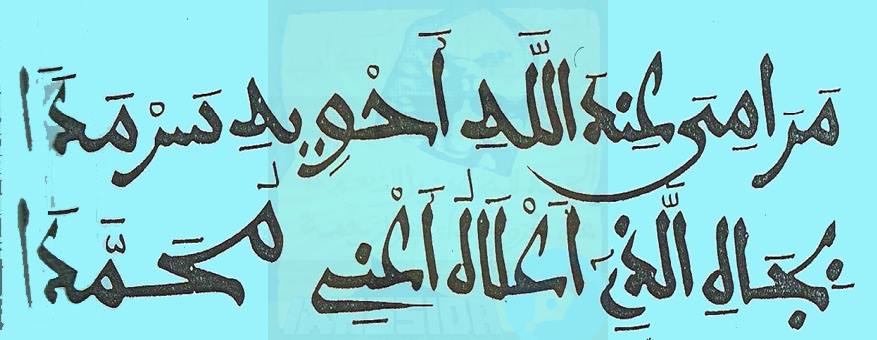 مَرَامِىَ عِندَ اللَّهِ أَحْوِيهِ سَرْمَدَا
بِجَاهِ الَّذِى أَعْلَاهُ أَعْنِى مُحَمَّدَا